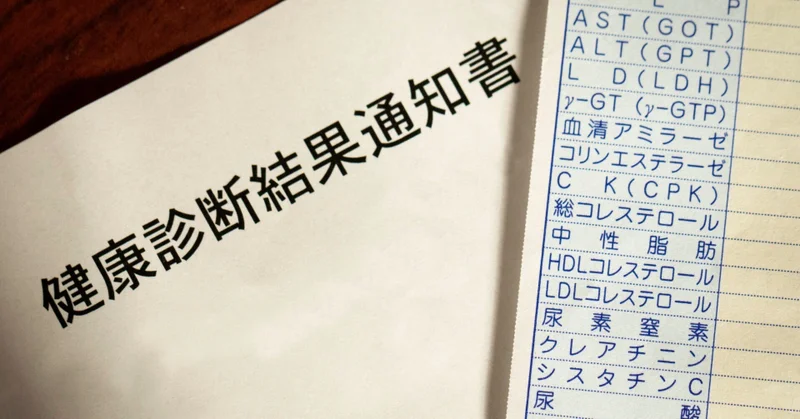 健康診断結果通知書
L P
AST(GOT)
ALT(GPT)
L D(LDH)
γ-GT (γ-GTP)
血清アミラーゼ
コリンエステラーゼ
C K(CPK)
総コレステロール
中性脂肪
HDLコレステロール
LDLコレステロール
尿素窒素
クレアチニン
シスタチンC
尿酸